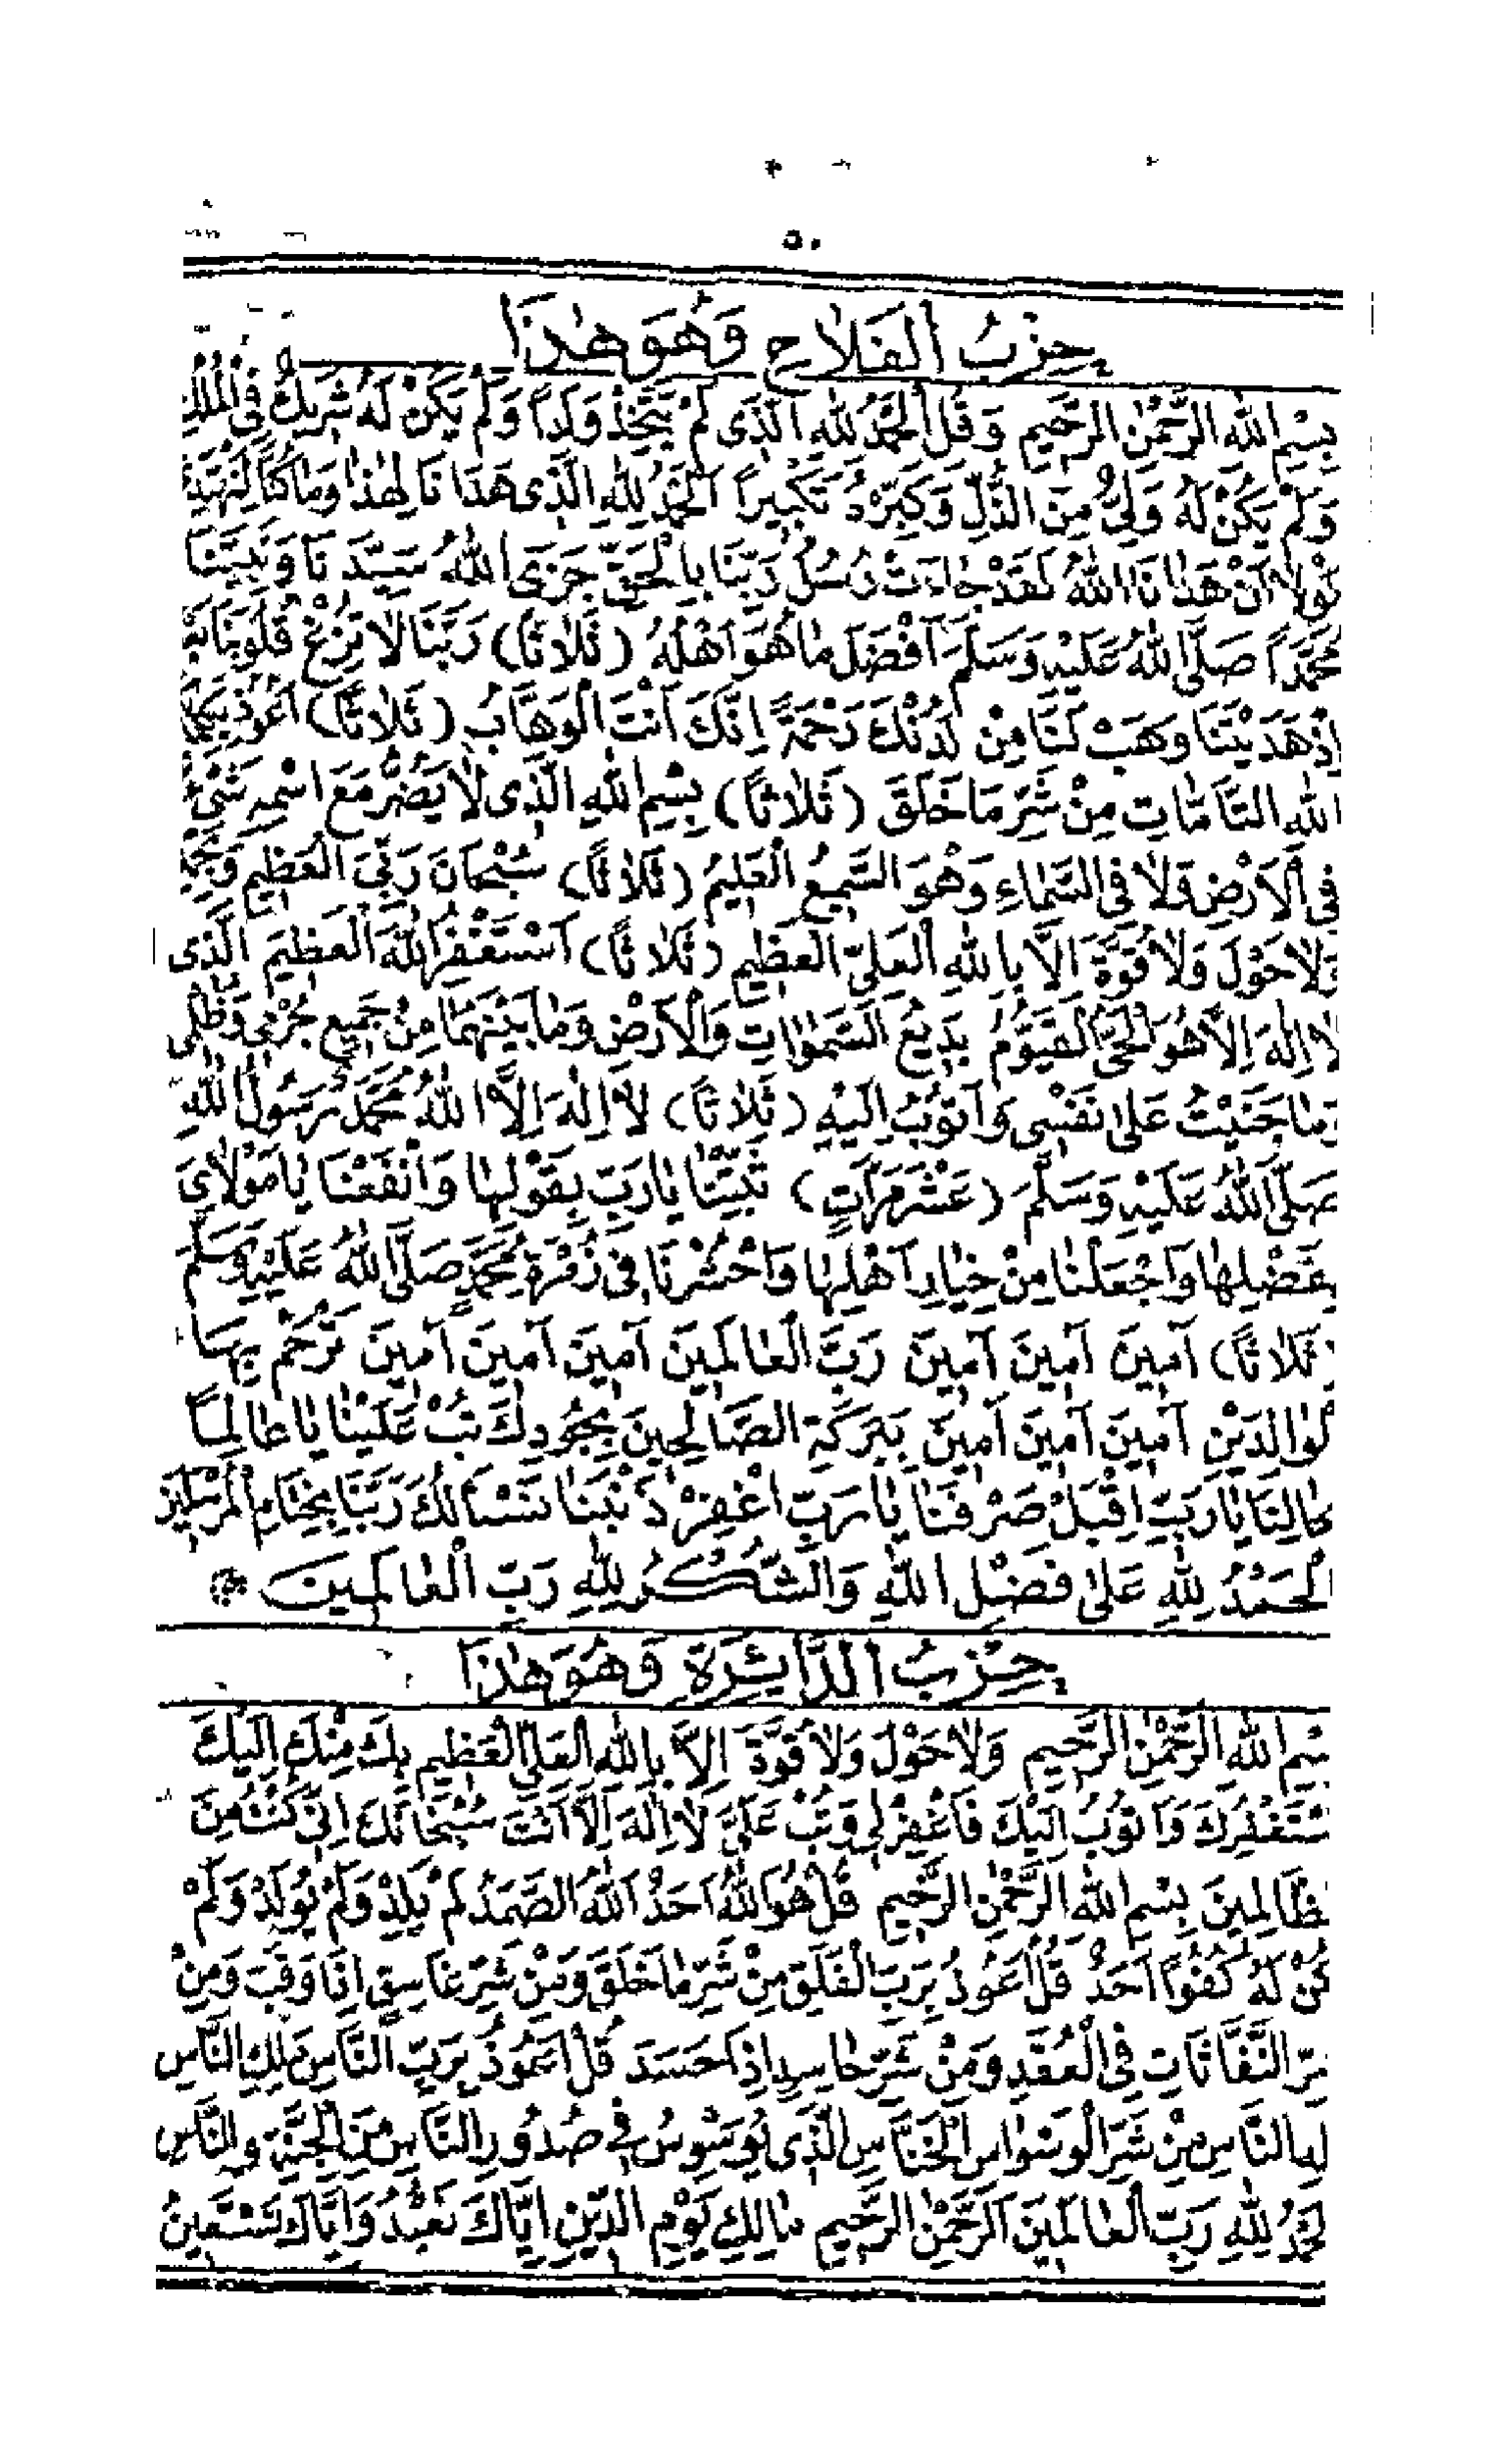 ٥٠
حِزْبُ الْفَلَاحِ وَهُوَ هٰذَا
بِسْمِ اللهِ الرَّحْمٰنِ الرَّحِيمِ وَقُلِ الْحَمْدُ لِلّٰهِ الَّذِى لَمْ يَتَّخِذْ وَلَداً وَلَمْ يَكُنْ لَهُ شَرِيكٌ فِى الْمُلْكِ
وَلَمْ يَكُنْ لَهُ وَلِىٌّ مِنَ الذُّلِّ وَكَبِّرْهُ تَكْبِيراً اَلْحَمْدُ لِلّٰهِ الَّذِى هَدَانَا لِهٰذَا وَمَا كُنَّا لِنَهْتَدِىَ
لَوْلَا اَنْ هَدٰنَا اللهُ لَقَدْ جَاءَتْ رُسُلُ رَبِّنَا بِالْحَقِّ جَزَى اللهُ سَيِّدَنَا وَنَبِيَّنَا
مُحَمَّداً صَلَّى اللهُ عَلَيْهِ وَسَلَّمَ اَفْضَلَ مَا هُوَ اَهْلُهُ (ثَلَاثاً) رَبَّنَا لَا تُزِغْ قُلُوبَنَا بَعْدَ
اِذْ هَدَيْتَنَا وَهَبْ لَنَا مِنْ لَدُنْكَ رَحْمَةً اِنَّكَ اَنْتَ الْوَهَّابُ (ثَلَاثاً) اَعُوذُ بِكَلِمَاتِ
اللهِ التَّامَّاتِ مِنْ شَرِّ مَا خَلَقَ (ثَلَاثاً) بِسْمِ اللهِ الَّذِى لَا يَضُرُّ مَعَ اسْمِهِ شَىْءٌ
فِى الْاَرْضِ وَلَا فِى السَّمَاءِ وَهُوَ السَّمِيعُ الْعَلِيمُ (ثَلَاثاً) سُبْحَانَ رَبِّىَ الْعَظِيمِ وَبِحَمْدِهِ
وَلَا حَوْلَ وَلَا قُوَّةَ اِلَّا بِاللهِ الْعَلِىِّ الْعَظِيمِ (ثَلَاثاً) اَسْتَغْفِرُ اللهَ الْعَظِيمَ الَّذِى
لَا اِلٰهَ اِلَّا هُوَ الْحَىُّ الْقَيُّومُ بَدِيعُ السَّمٰوَاتِ وَالْاَرْضِ وَمَا بَيْنَهُمَا مِنْ جَمِيعِ جُرْمِى وَظُلْمِى
وَمَا جَنَيْتُ عَلَى نَفْسِى وَاَتُوبُ اِلَيْهِ (ثَلَاثاً) لَا اِلٰهَ اِلَّا اللهُ مُحَمَّدٌ رَسُولُ اللهِ
صَلَّى اللهُ عَلَيْهِ وَسَلَّمَ (عَشْرَ مَرَّاتٍ) ثَبِّتْنَا يَا رَبِّ بِقَوْلِهَا وَانْفَعْنَا يَا مَوْلَاىَ
بِفَضْلِهَا وَاجْعَلْنَا مِنْ خِيَارِ اَهْلِهَا وَاحْشُرْنَا فِى زُمْرَةِ مُحَمَّدٍ صَلَّى اللهُ عَلَيْهِ وَسَلَّمَ
(ثَلَاثاً) آمِينَ آمِينَ آمِينَ رَبَّ الْعَالَمِينَ آمِينَ آمِينَ آمِينَ تَرْحَمْ بِهَا
لْوَالِدَيْنِ آمِينَ آمِينَ آمِينَ بِبَرَكَةِ الصَّالِحِينَ بِجُودِكَ تُبْ عَلَيْنَا يَا عَالِماً
بِحَالِنَا يَا رَبِّ اِقْبَلْ صَرْفَنَا يَا رَبِّ اغْفِرْ ذَنْبَنَا نَسْأَلُكَ رَبَّنَا بِخِتَامِ الْمُرْسَلِينَ
الْحَمْدُ لِلّٰهِ عَلَى فَضْلِ اللهِ وَالشُّكْرُ لِلّٰهِ رَبِّ الْعَالَمِينَ *
حِزْبُ الدَّائِرَةِ وَهُوَ هٰذَا
بِسْمِ اللهِ الرَّحْمٰنِ الرَّحِيمِ وَلَا حَوْلَ وَلَا قُوَّةَ اِلَّا بِاللهِ الْعَلِىِّ الْعَظِيمِ بِكَ مِنْكَ اِلَيْكَ
سْتَغْفِرُكَ وَاَتُوبُ اِلَيْكَ فَاغْفِرْ لِى وَتُبْ عَلَىَّ لَا اِلٰهَ اِلَّا اَنْتَ سُبْحَانَكَ اِنِّى كُنْتُ مِنَ
ظَّالِمِينَ بِسْمِ اللهِ الرَّحْمٰنِ الرَّحِيمِ قُلْ هُوَ اللهُ اَحَدٌ اَللهُ الصَّمَدُ لَمْ يَلِدْ وَلَمْ يُولَدْ وَلَمْ
كُنْ لَهُ كُفُواً اَحَدٌ قُلْ اَعُوذُ بِرَبِّ الْفَلَقِ مِنْ شَرِّ مَا خَلَقَ وَمِنْ شَرِّ غَاسِقٍ اِذَا وَقَبَ وَمِنْ
شَرِّ النَّفَّاثَاتِ فِى الْعُقَدِ وَمِنْ شَرِّ حَاسِدٍ اِذَا حَسَدَ قُلْ اَعُوذُ بِرَبِّ النَّاسِ مَلِكِ النَّاسِ
لٰهِ النَّاسِ مِنْ شَرِّ الْوَسْوَاسِ الْخَنَّاسِ الَّذِى يُوَسْوِسُ فِى صُدُورِ النَّاسِ مِنَ الْجِنَّةِ وَالنَّاسِ
لْحَمْدُ لِلّٰهِ رَبِّ الْعَالَمِينَ اَلرَّحْمٰنِ الرَّحِيمِ مَالِكِ يَوْمِ الدِّينِ اِيَّاكَ نَعْبُدُ وَاِيَّاكَ نَسْتَعِينُ